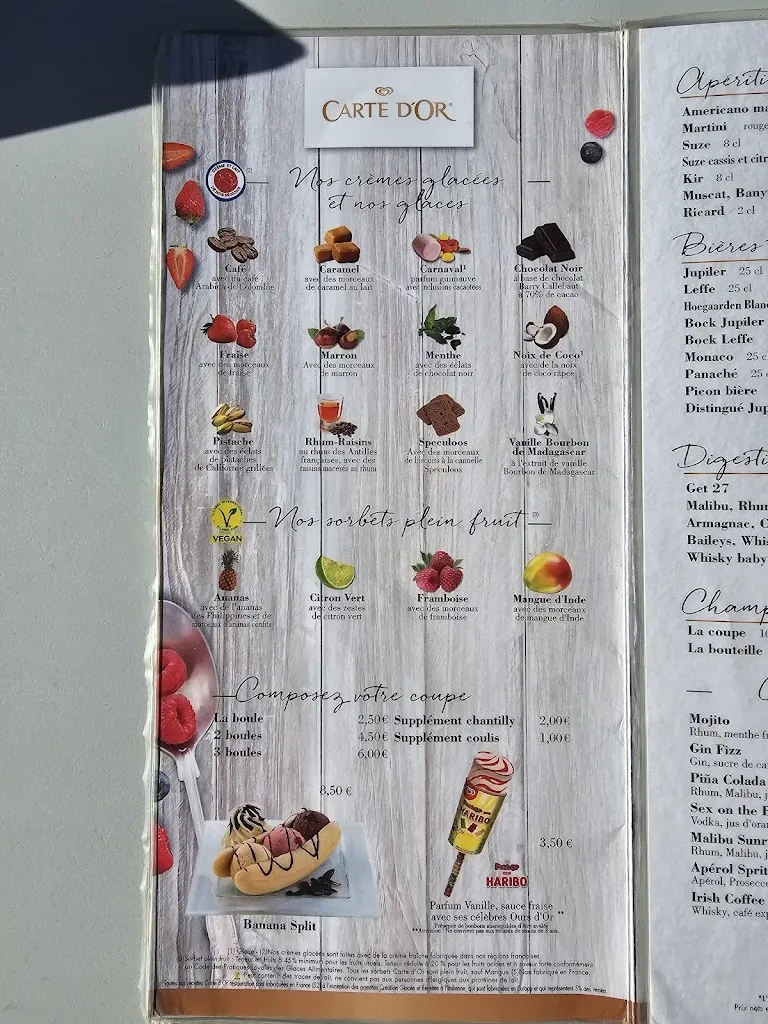 CARTE D'OR
Nos crèmes glacées
et nos glaces
Café
avec du café
Arabica de Colombie
Caramel
avec des morceaux
de caramel au lait
Carnaval¹
parfum guimauve
avec inclusions cacaotées
Chocolat Noir
à base de chocolat
Barry Callebaut
à 70% de cacao
Fraise
avec des morceaux
de fraise
Marron
Avec des morceaux
de marron
Menthe
avec des éclats
de chocolat noir
Noix de Coco¹
avec de la noix
de coco râpée
Pistache
avec des éclats
de pistaches
de Californie grillées
Rhum-Raisins
au rhum des Antilles
françaises, avec des
raisins macérés au rhum
Speculoos
Avec des morceaux
de biscuits à la cannelle
Speculoos
Vanille Bourbon
de Madagascar
à l'extrait de vanille
Bourbon de Madagascar
VEGAN
Nos sorbets plein fruit (3)
Ananas
avec de l'ananas
des Philippines et de
morceaux d'ananas confits
Citron Vert
avec des zestes
de citron vert
Framboise
avec des morceaux
de framboise
Mangue d'Inde
avec des morceaux
de mangue d'Inde
Composez votre coupe
La boule 2,50€
2 boules 4,50€
3 boules 6,00€
Supplément chantilly 2,00€
Supplément coulis 1,00€
8,50 €
Banana Split
HARIBO
3,50 €
HARIBO
Parfum Vanille, sauce fraise
avec ses célèbres Ours d'Or **
(1) Glace - (2) Nos crèmes glacées sont faites avec de la crème fraîche fabriquée dans nos régions françaises.
Apériti
Americano ma
Martini rouge
Suze 8 cl
Suze cassis et citr
Kir 8 cl
Muscat, Bany
Ricard 2 cl
Bières
Jupiler 25 cl
Leffe 25 cl
Hoegaarden Blan
Bock Jupiler
Bock Leffe
Monaco 25 c
Panaché 25
Picon bière
Distingué Jup
Digesti
Get 27
Malibu, Rhu
Armagnac, C
Baileys, Whis
Whisky baby
Champ
La coupe 10
La bouteille
Mojito
Rhum, menthe fr
Gin Fizz
Gin, sucre de ca
Piña Colada
Rhum, Malibu, j
Sex on the
Vodka, jus d'ora
Malibu Sunr
Rhum, Malibu, j
Apérol Sprit
Apérol, Prosecc
Irish Coffee
Whisky, café exp
Prix nets e